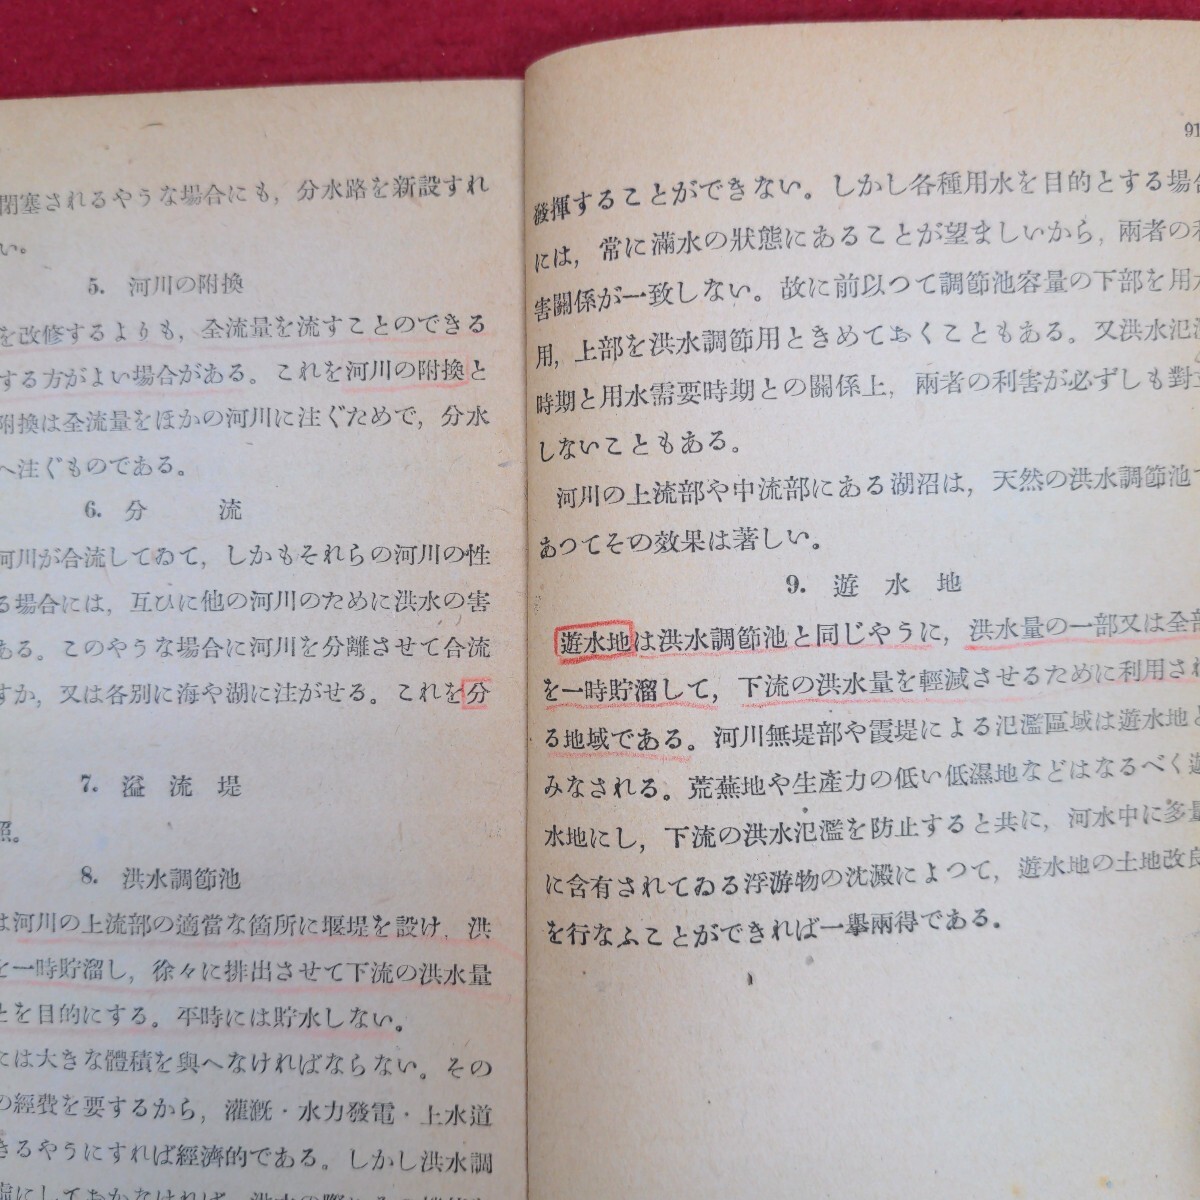 閉塞されるやうな場合にも，分水路を新設すれ
い。
5. 河川の附換
を改修するよりも，全流量を流すことのできる
する方がよい場合がある。これを河川の附換と
附換は全流量をほかの河川に注ぐためで，分水
へ注ぐものである。
6. 分　　流
河川が合流してゐて，しかもそれらの河川の性
る場合には，互ひに他の河川のために洪水の害
ある。このやうな場合に河川を分離させて合流
すか，又は各別に海や湖に注がせる。これを分
7. 溢 流 堤
照。
8. 洪水調節池
は河川の上流部の適當な箇所に堰堤を設け，洪
を一時貯溜し，徐々に排出させて下流の洪水量
とを目的にする。平時には貯水しない。
には大きな體積を與へなければならない。その
の經費を要するから，灌漑・水力發電・上水道
きるやうにすれば經濟的である。しかし洪水調
にしておかなければ，洪水の際に
91
發揮することができない。しかし各種用水を目的とする場合
には，常に滿水の狀態にあることが望ましいから，兩者の利
害關係が一致しない。故に前以つて調節池容量の下部を用水
用，上部を洪水調節用ときめておくこともある。又洪水氾濫
時期と用水需要時期との關係上，兩者の利害が必ずしも對立
しないこともある。
河川の上流部や中流部にある湖沼は，天然の洪水調節池で
あつてその效果は著しい。
9. 遊 水 地
遊水地は洪水調節池と同じやうに，洪水量の一部又は全部
を一時貯溜して，下流の洪水量を輕減させるために利用され
る地域である。河川無堤部や霞堤による氾濫區域は遊水地と
みなされる。荒蕪地や生產力の低い低濕地などはなるべく遊
水地にし，下流の洪水氾濫を防止すると共に，河水中に多量
に含有されてゐる浮游物の沈澱によつて，遊水地の土地改良
を行なふことができれば一擧兩得である。